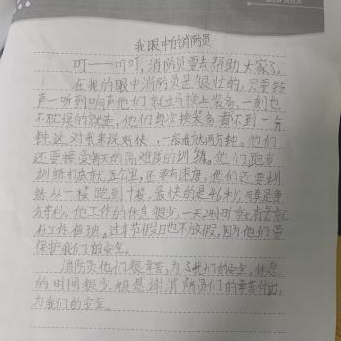 我眼中的消防员
叮——叮叮，消防员要去帮助大家了。
在我的眼中消防员是很壮的，只要铃
声一听到响声他们就去换上装备，一刻也
不耽误的就走，他们每次换装备都不到一分
钟这对来来说好快，一般就两分钟。他们
还要接受每天的高难度的训练。他们跑步
训练都五公里，还有速度，他们还要训
练从一楼跑到十楼，最快的是46秒，
他工作的休息很少，一天24小时
在工作值班。过年节假日也不放假，因为他们要
保护我们的安全。
消防员他们很辛苦，为了我们的安全，休息
的时间很少，很感谢消防员们的辛苦付出，
为我们的安全。